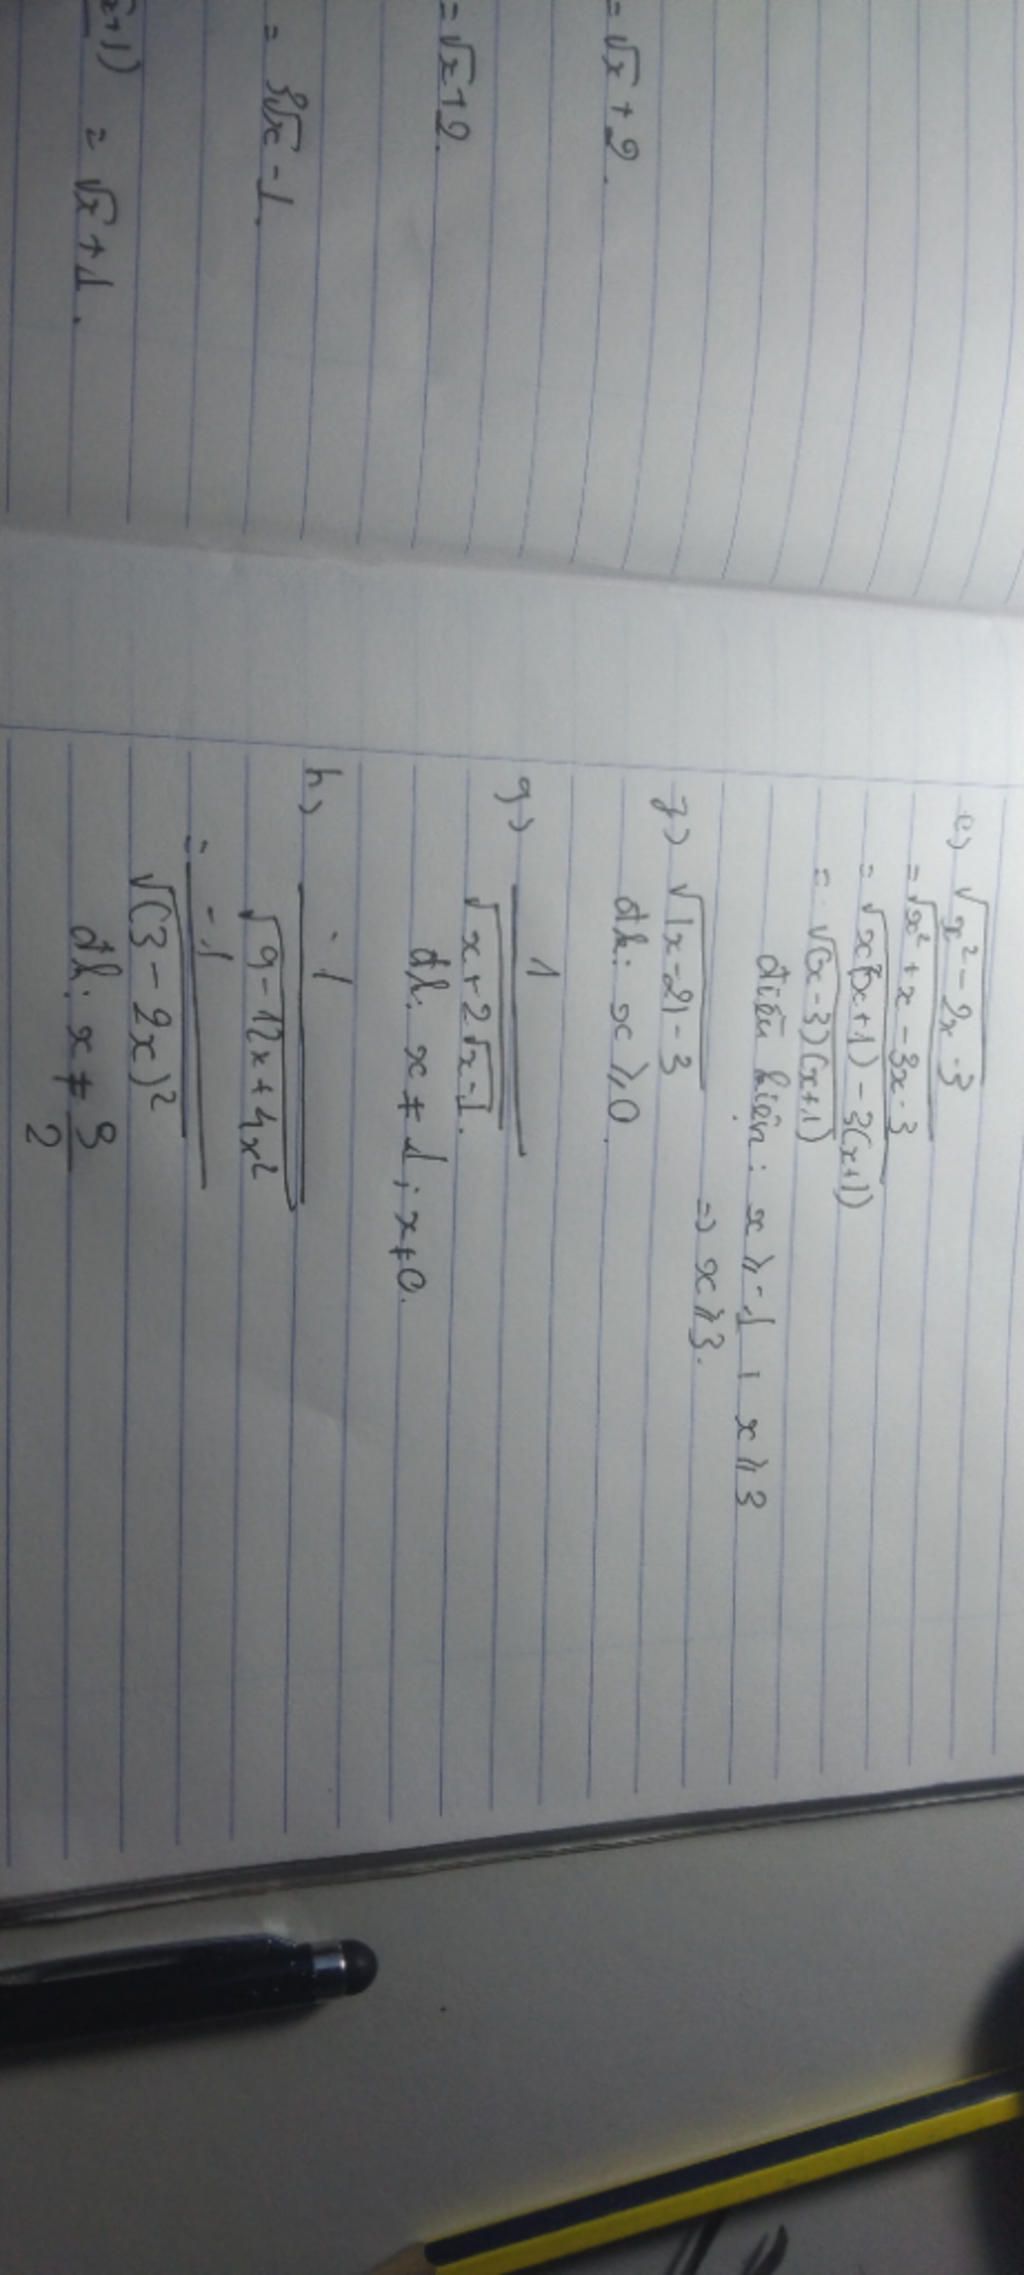 = √x + 2.
= √x + 2.
= 3√x - 1.
x+1) = √x + 1.
e) √x² - 2x - 3
= √x² + x - 3x - 3
= √x(x+1) - 3(x+1)
= √(x-3)(x+1)
điều kiện: x ⩾ -1 , x ⩾ 3
=> x ⩾ 3.
f) √|x-2| - 3
đk: x ⩾ 0.
g) 1
√x + 2√x-1.
đk: x ≠ 1; x ≠ 0.
h) 1
√9 - 12x + 4x²
= -1
√(3 - 2x)²
đk: x ≠ 3
2